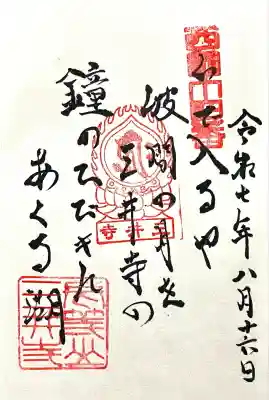 令和七年八月十六日
西国十四番
いで入るや
波間の月を
三井寺の
鐘のひびきに
あくる湖
三井寺